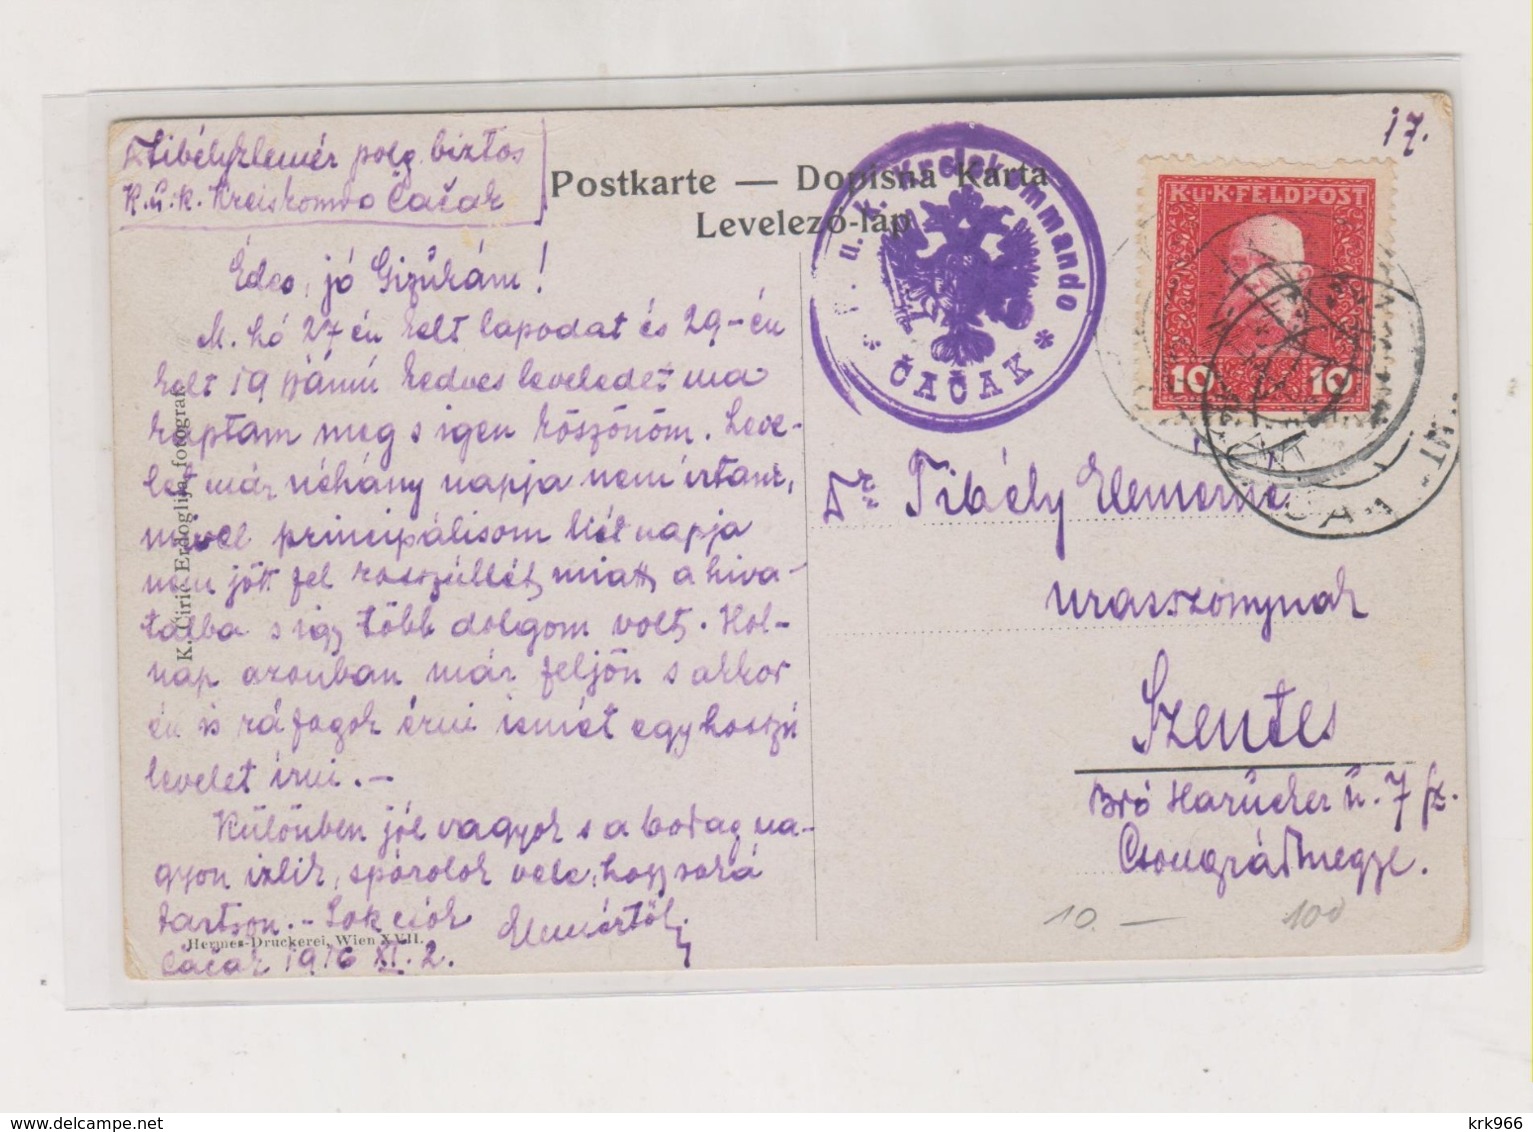 Tibély Elemér polg. biztos
K.u.K. Kreiskomdo Čačak
Postkarte — Dopisna Karta
Levelező-lap
17.
K. u. k. Kreiskommando
* ČAČAK *
K.u.K. FELDPOST
10 10
Édes, jó Gizukám!
M. hó 27-én kelt lapodat és 29-én
kelt 19 számú kedves leveledet ma
kaptam meg s igen köszönöm. Leve-
let már néhány napja nem írtam,
mivel principálisom két napja
nem jött fel rosszullét miatt a hiva-
talba s így több dolgom volt. Hol-
nap azonban már feljön s akkor
én is rá fogok érni ismét egy hosszú
levelet írni. —
Különben jól vagyok s a
gyon ízlik, spórolok vele, hogy soká
tartson. — Sok csók Elemértől
Čačak 1916 XI. 2.
K. Ćirić Erdoglija, fotograf.
Hermes-Druckerei, Wien XVII.
Dr. Tibély Elemérné
urasszonynak
Szentes
Bró Harucker u. 7 sz.
Csongrádmegye.
10. — 100
krk966